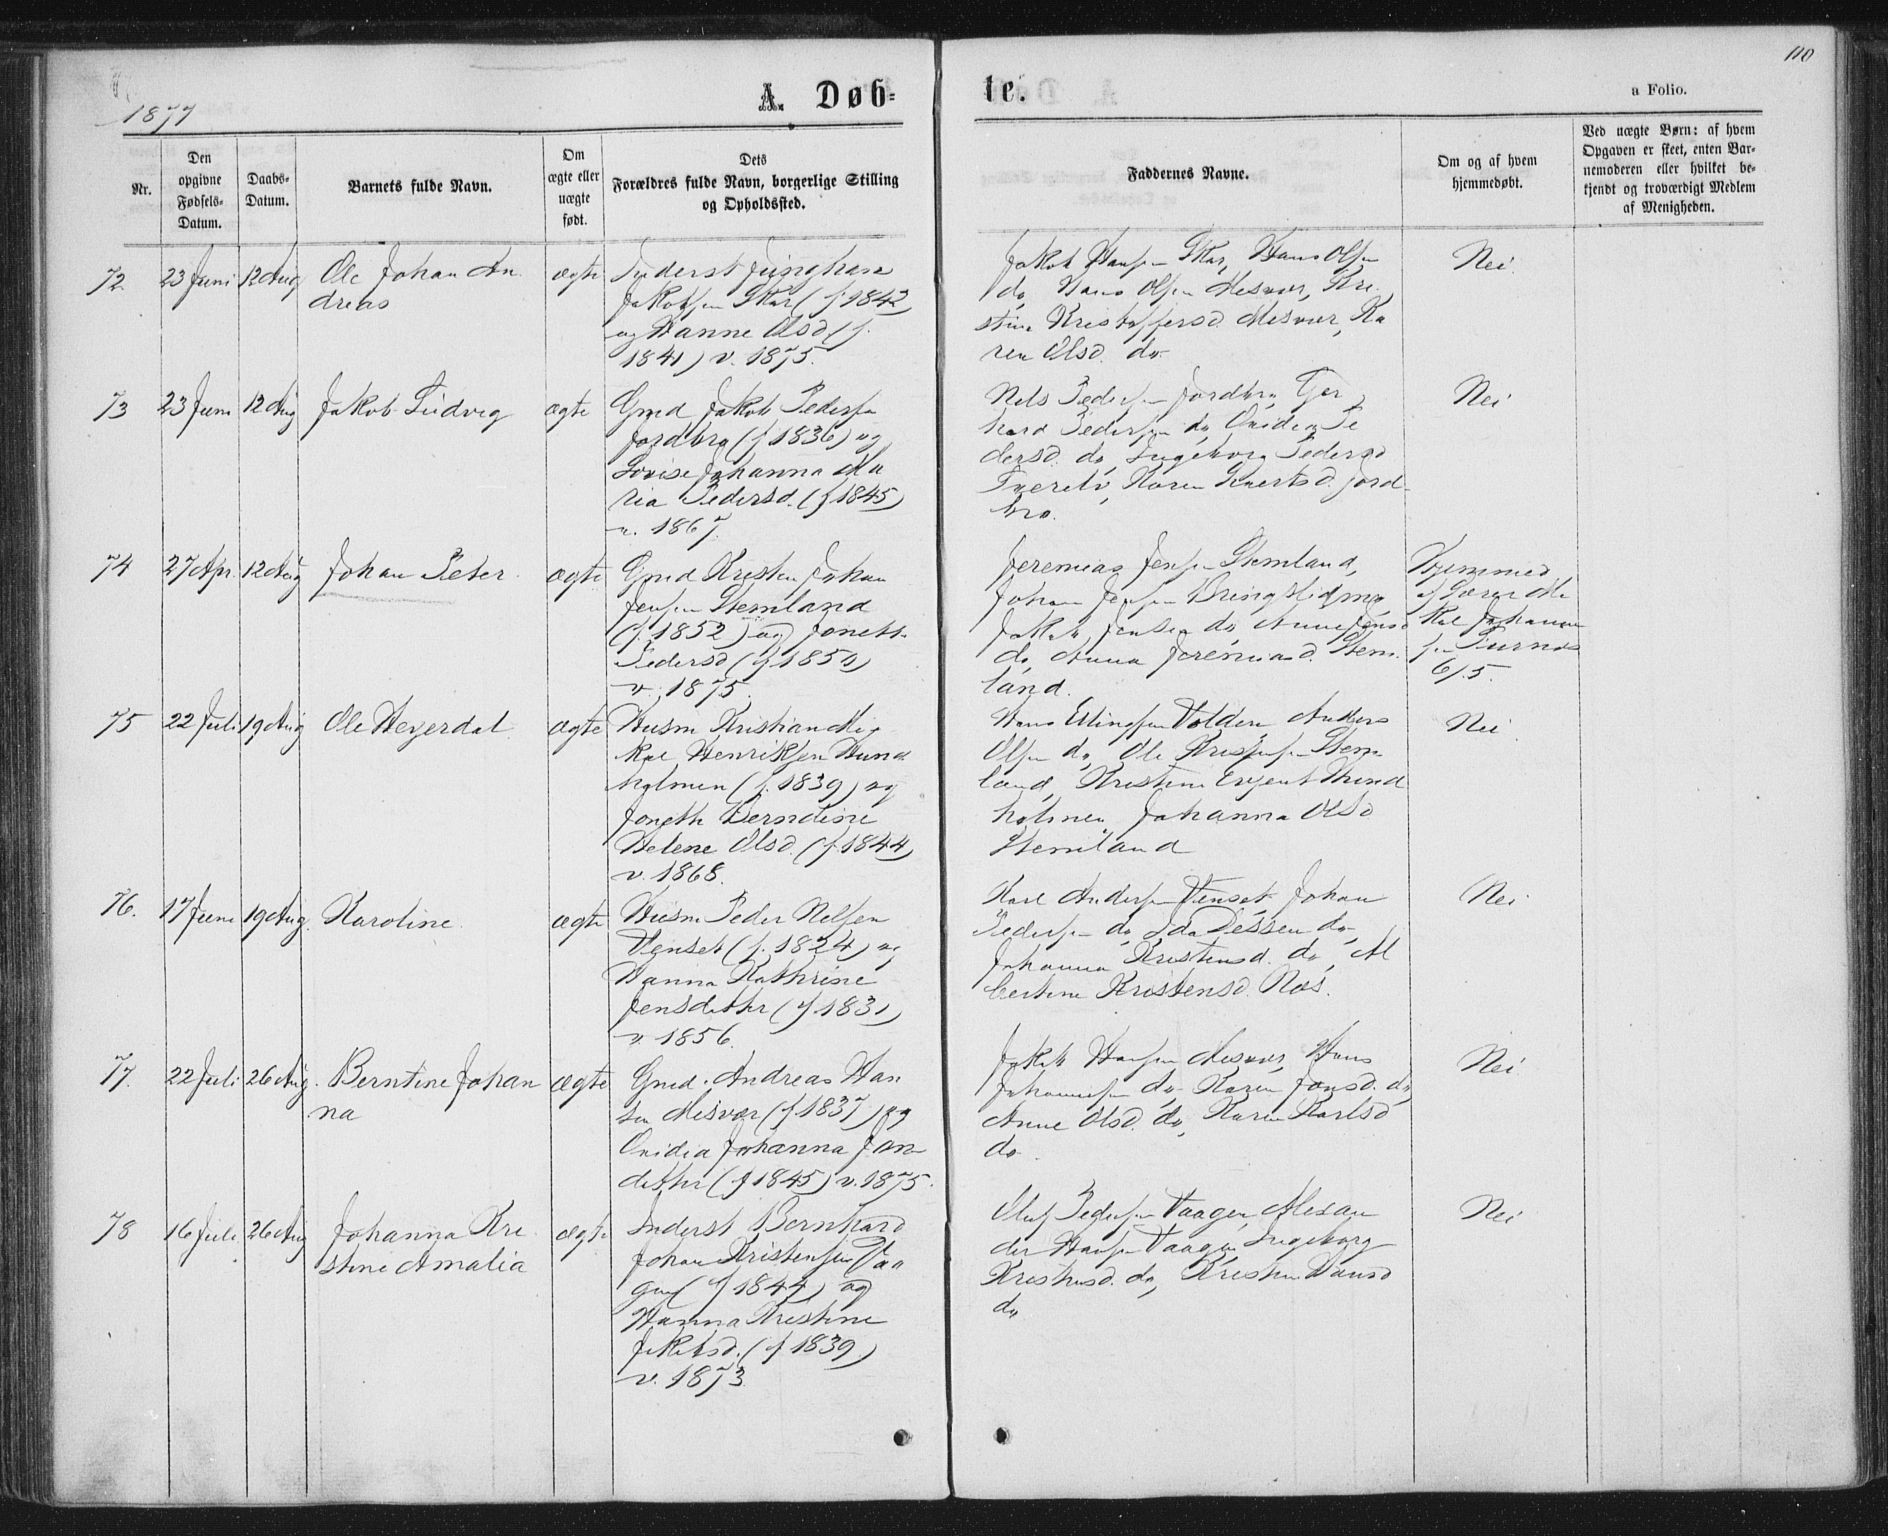 1877
A. Døb-
te.
110
a Folio.
Nr.
Den
opgivne
Fødsels-
Datum.
Daabs-
Datum.
Barnets fulde Navn.
Om
ægte eller
uægte
født.
Dets
Forældres fulde Navn, borgerlige Stilling
og Opholdssted.
Faddernes Navne.
Om og af hvem
hjemmedøbt.
Ved uægte Børn: af hvem
Opgaven er skeet, enten Bar-
nemoderen eller hvilket be-
kjendt og troværdigt Medlem
af Menigheden.
72
23 Juni
12 Aug
Ole Johan An
dreas
ægte
Inderst Junghans
Jakobsen Skar (f 1842
og Hanne Olsd (f.
1841) v. 1875.
Jakob Hansen Skar, Hans Olsen
do, Hans Olsen Mesvær, Kri
stine Kristoffersd. Mesvær, Ka
ren Olsd. do
Nei
73
23 Juni
12 Aug
Jakob Ludvig
ægte
Gmd Jakob Pedersen
Jordbro (f 1836) og
Lovise Johanna Ma
ria Pedersd. (f 1845)
v. 1867.
Nels Pedersen Jordbro, Ger
hard Pedersen do, Ovidia Pe
dersd. do, Ingeborg Pedersd
Tverelv, Karen Knertsd. Jord
bro.
Nei
74
27 Apr.
12 Aug
Johan Peter
ægte
Gmd Kristen Johan
Jensen Stemland
(f. 1852) og Joneth
Pedersd (f 1850)
v. 1875.
Jeremias Jensen Stemland,
Johan Jensen Bringslidmo,
Jakob Jensen do, Anne Jensd
do, Anna Jeremiasd. Stem
land.
Hjemmed
af Lærer Mi
kal Johanne
sen
6/5.
75
22 Juli
19 Aug
Ole Heyerdal
ægte
Husm Kristian Mi
kal Henriksen Hund
holmen (f. 1839) og
Joneth Berndine
Helene Olsd. (f 1844)
v. 1868.
Hans Ellingsen Volden, Anders
Olsen do, Ole Kristensen Stem
land, Kristine Hund
holmen, Johanna Olsd
Stemland
Nei
76.
17 Juni
19 Aug.
Karoline
ægte
Husm Peder Nelsen
Venset (f. 1824) og
Hanna Kathrine
Jensdatter (f 1831)
v. 1856.
Karl Andersen Venset, Johan
Pedersen do, Ida Dessen do,
Johanna Kristensd. do, Al
bertine Kristensd. Næs.
Nei
77.
22 Juli
26 Aug.
Berntine Johan
na
ægte
Gmd. Andreas Han
sen Mesvær (f 1837) og
Ovidia Johanna Jons
datter (f 1845) v. 1875.
Jakob Hansen Mesvær, Hans
Johannesen do, Karen Jonsd. do,
Anne Olsd. do, Karen Karlsd
do.
Nei
78
16 Juli
26 Aug
Johanna Kri
stine Amalia
ægte
Inderst Bernhard
Johan Kristensen Vaa
gen (f 1844) og
Hanna Kristine
Jakobsd. (f 1839)
v. 1873
Oluf Pedersen Vaagen, Alexan
der Hansen Vaagen, Ingeborg
Kristensd. do, Kristine Hansd
do
Nei